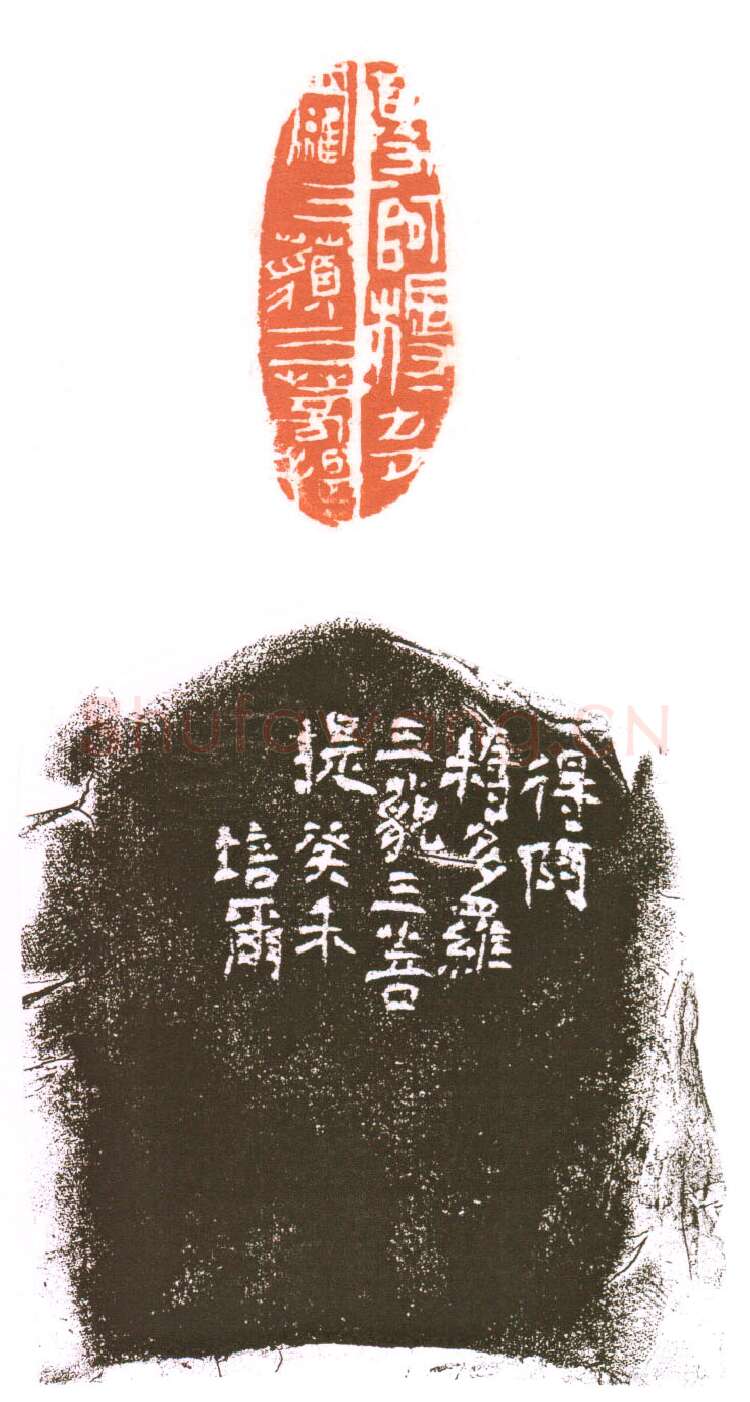 得阿耨多
羅三藐三菩提
Shufawang.CN
得阿
耨多羅
三藐三菩
提 癸未
培爾